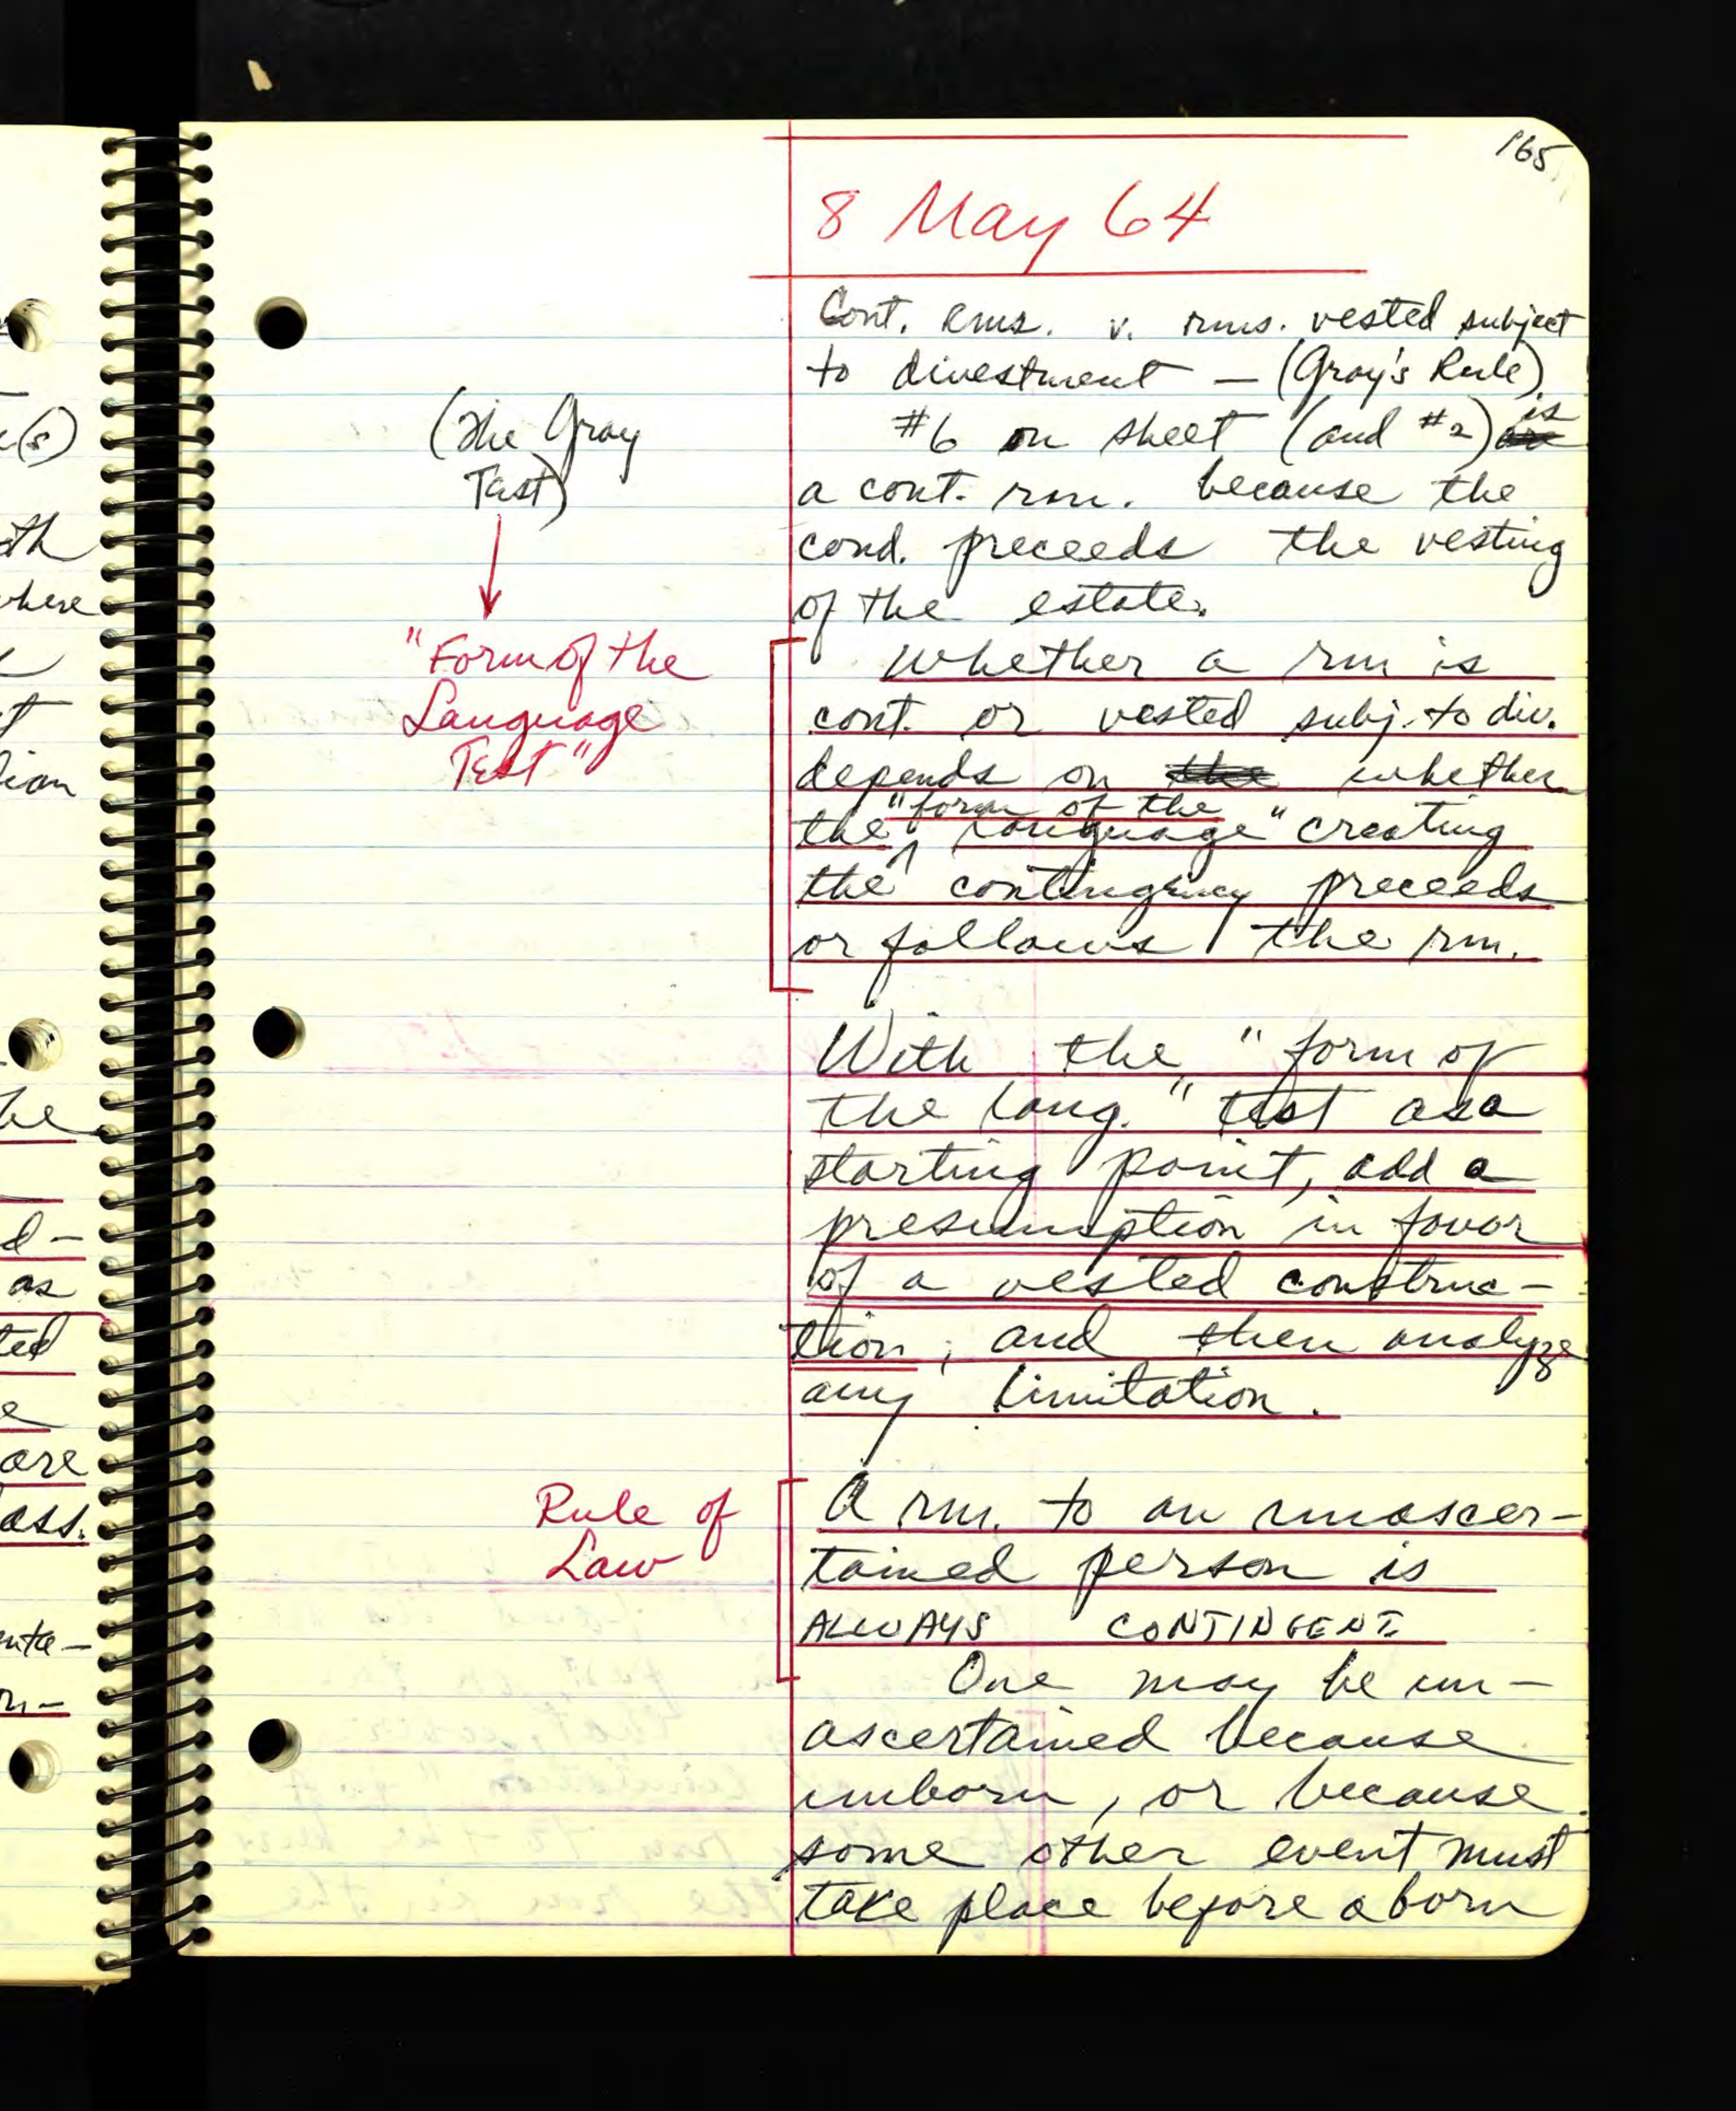 165
8 May 64
Cont. rms. v. rms. vested subject
to divestment — (Gray's Rule)
#6 on sheet (and #2) is
a cont. rm. because the
cond. preceeds the vesting
of the estate.
(The Gray
Test)
"Form of the
Language
Test"
whether a rm is
cont. or vested subj. to div.
depends on the whether
the "form of the language" creating
the contingency preceeds
or follows the rm.
With the "form of
the lang." test as a
starting point, add a
presumption in favor
of a vested construc-
tion; and then analyze
any limitation.
Rule of
Law
A rm. to an unascer-
tained person is
ALWAYS CONTINGENT
One may be un-
ascertained because
unborn, or because
some other event must
take place before a born
(s)
th
where
t
he
d-
as
ted
e
are
ass.